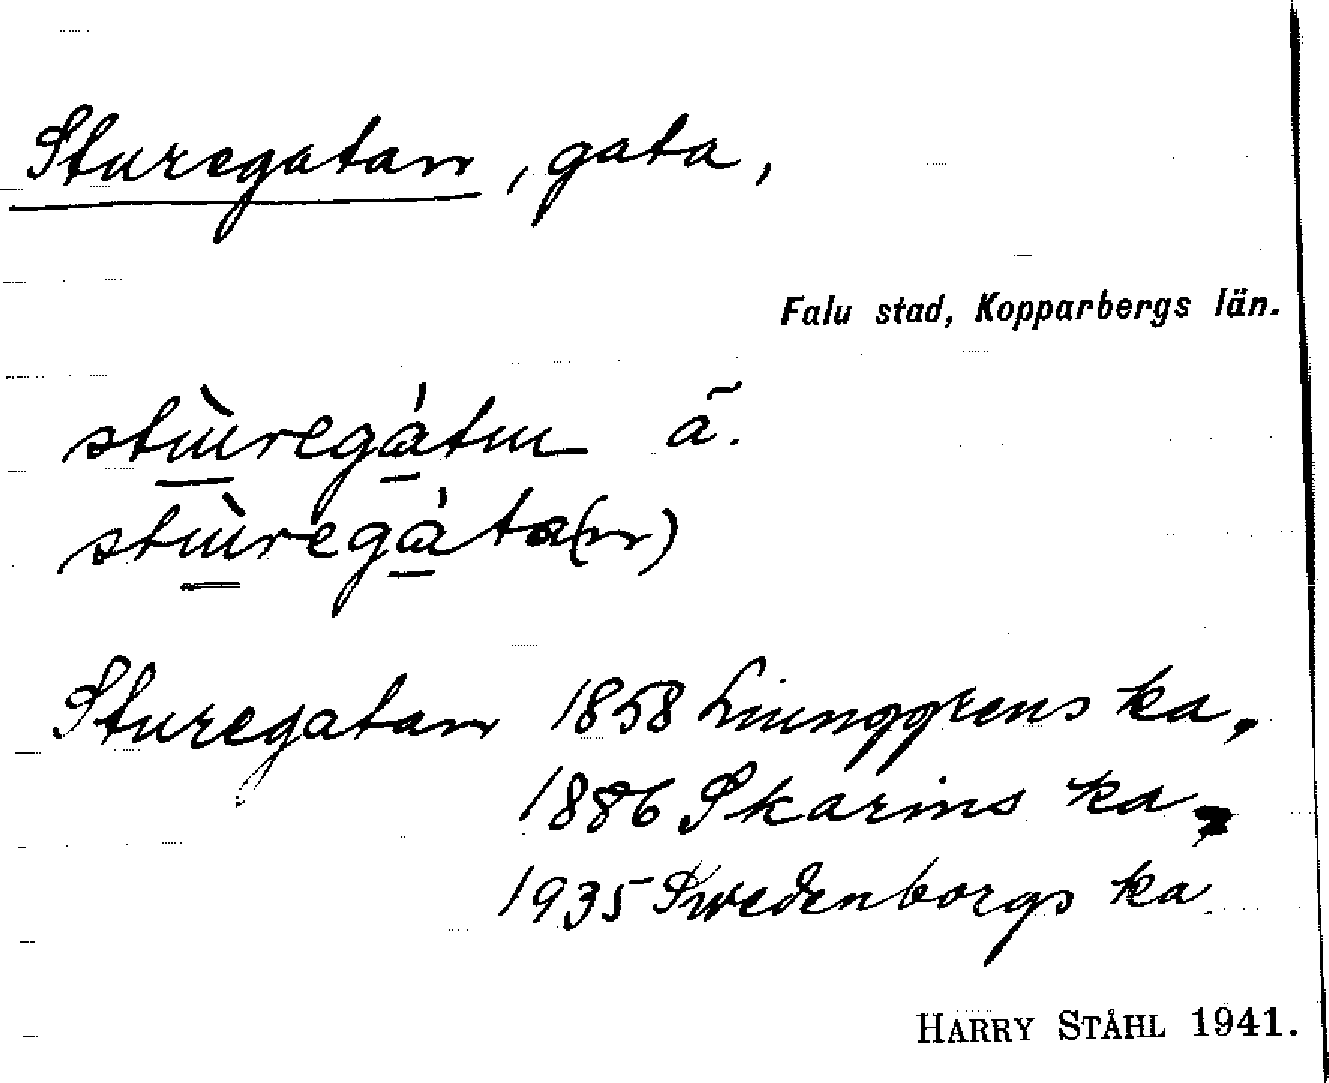 Sturegatan, gata,
Falu stad, Kopparbergs län.
stùregátm ä.
stùregáta(n)
Sturegatan 1858 Ljunggrens ka,
1886 Skarins ka,
1935 Swedenborgs ka
HARRY STÅHL 1941.